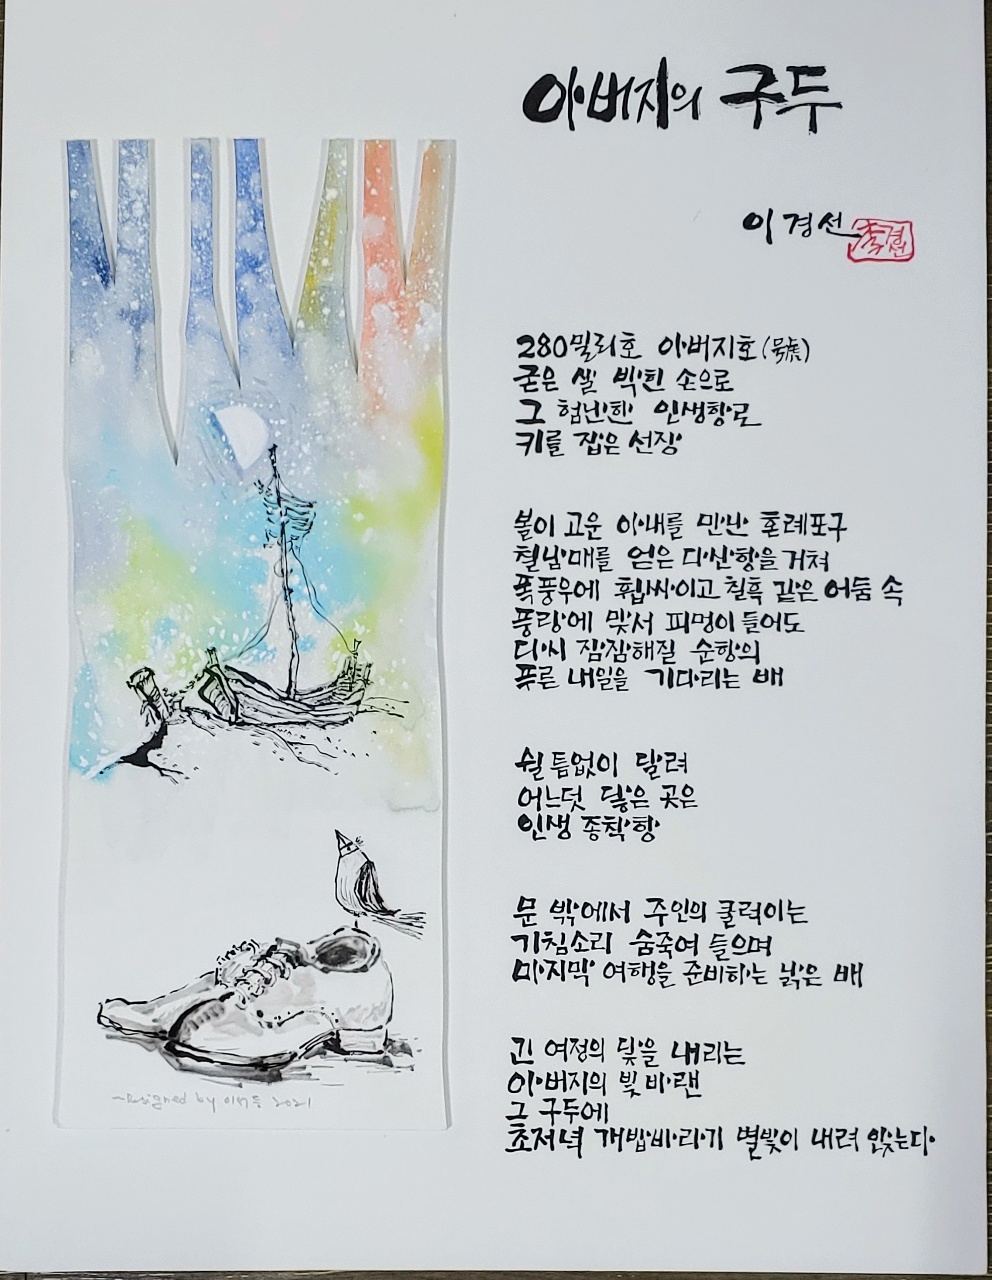 아버지의 구두
이경선
李경선
280밀리호 아버지호(号)
굳은 살 박힌 손으로
그 험난한 인생항로
키를 잡은 선장
볼이 고운 아내를 만난 혼례포구
칠남매를 얻은 다산항을 거쳐
폭풍우에 휩싸이고 칠흑 같은 어둠 속
풍랑에 맞서 피멍이 들어도
다시 잠잠해질 순항의
푸른 내일을 기다리는 배
쉴 틈없이 달려
어느덧 닿은 곳은
인생 종착항
문 밖에서 주인의 쿨럭이는
기침소리 숨죽여 들으며
마지막 여행을 준비하는 낡은 배
긴 여정의 닻을 내리는
아버지의 빛 바랜
그 구두에
초저녁 개밥바라기 별빛이 내려 앉는다.
~Designed by 이버들 2021